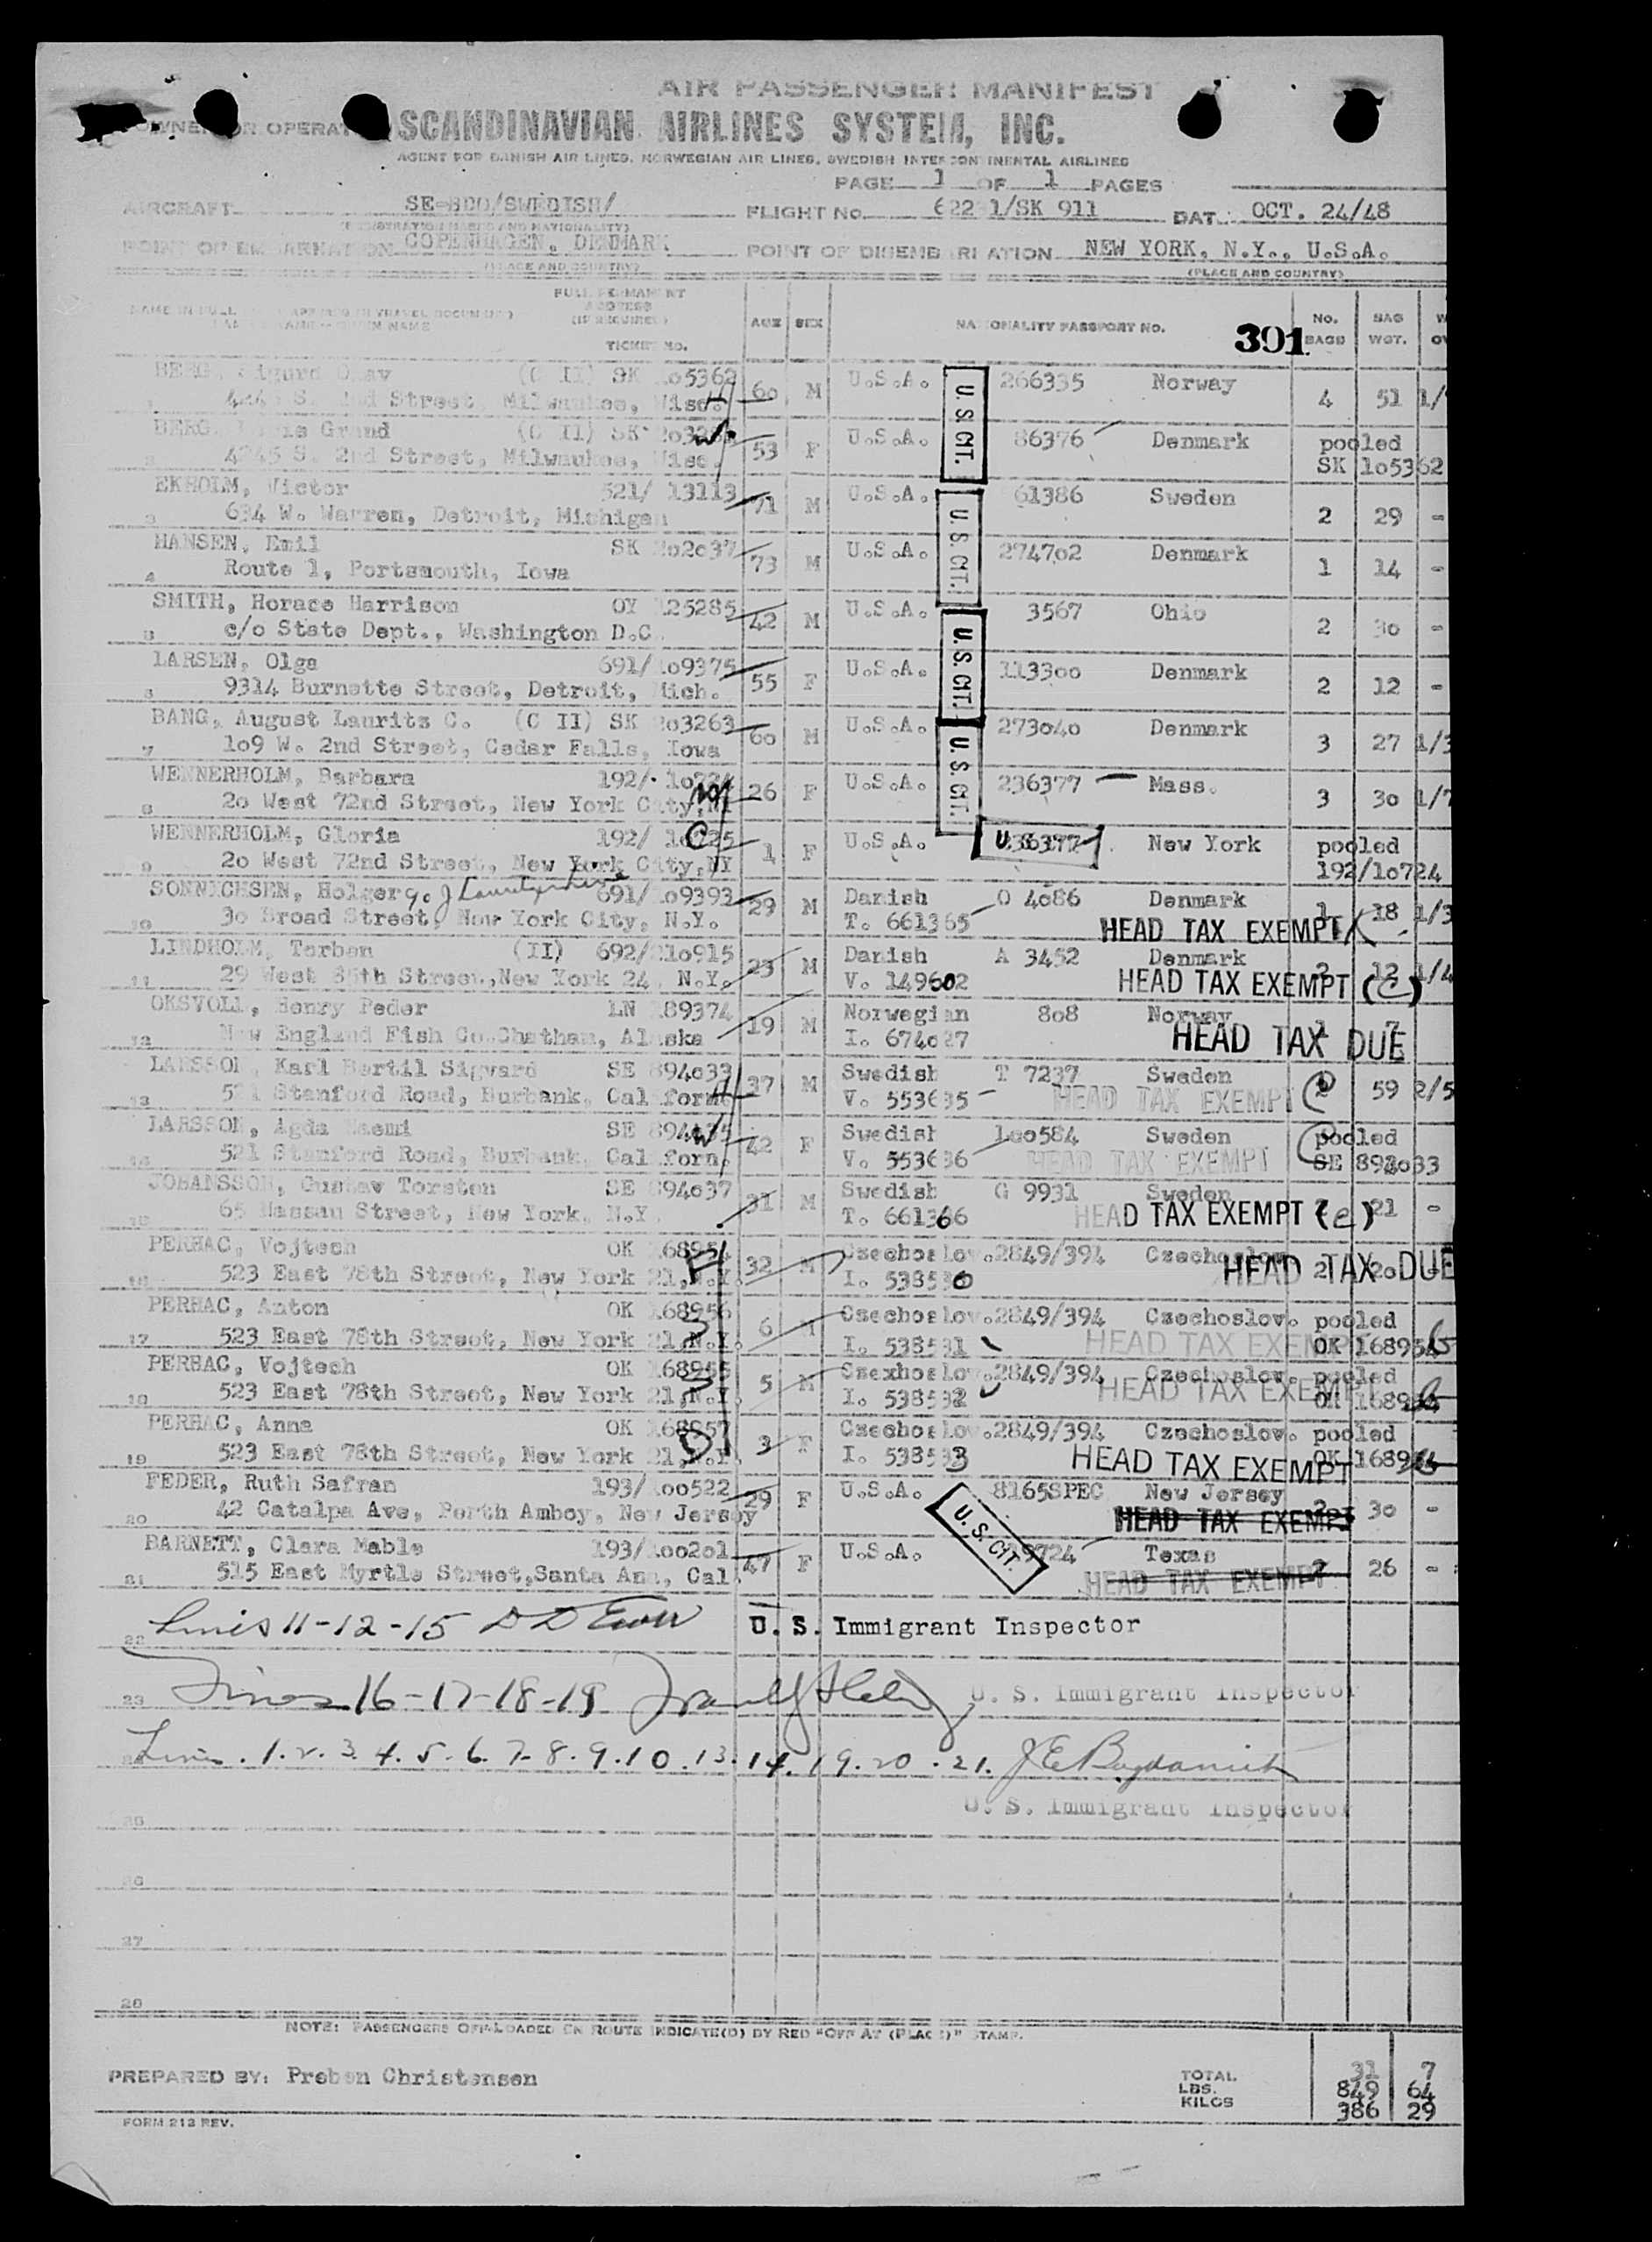 AIR PASSENGER MANIFEST
OWNER OR OPERATOR SCANDINAVIAN AIRLINES SYSTEM, INC.
AGENT FOR DANISH AIR LINES, NORWEGIAN AIR LINES, SWEDISH INTERCONTINENTAL AIRLINES
PAGE 1 OF 1 PAGES
AIRCRAFT SE-BDO/SWEDISH/ FLIGHT No. /SK 911 DATE OCT. 24/48
(REGISTRATION MARKS AND NATIONALITY)
POINT OF EMBARKATION COPENHAGEN, DENMARK POINT OF DISEMBARKATION NEW YORK, N.Y., U.S.A.
(PLACE AND COUNTRY) (PLACE AND COUNTRY)
FULL PERMANENT ADDRESS (IF REQUIRED) TICKET NO. AGE SEX NATIONALITY PASSPORT NO. 391 No. BAGS BAG WGT.
BERG, Sigurd Olav (C II) SK 105362 60 M U.S.A. 266335 Norway 4 51 1/
1 S. 2nd Street, Milwaukee, Wisc. H
BERG, Grand (C II) SK 53 F U.S.A. 86376 Denmark pooled
2 4245 S. 2nd Street, Milwaukee, Wisc. W SK 105362
U.S.CIT.
EKHOLM, Victor 521/ 13113 71 M U.S.A. 61386 Sweden 2 29 -
3 634 W. Warren, Detroit, Michigan
HANSEN, Emil SK 202037 73 M U.S.A. 274702 Denmark 1 14 -
4 Route 1, Portsmouth, Iowa
U.S.CIT.
SMITH, Horace Harrison OY 125285 42 M U.S.A. 3567 Ohio 2 30 -
5 c/o State Dept., Washington D.C.
LARSEN, Olga 691/ 109375 55 F U.S.A. 113300 Denmark 2 12 -
6 9314 Burnette Street, Detroit, Mich.
U.S.CIT.
BANG, August Laurits C. (C II) SK 203263 60 M U.S.A. 273040 Denmark 3 27 1/3
7 109 W. 2nd Street, Cedar Falls, Iowa
WENNERHOLM, Barbara 192/ 10724 26 F U.S.A. 236377 Mass. 3 30 1/7
8 20 West 72nd Street, New York City, NY
U.S.CIT.
WENNERHOLM, Gloria 192/ 10725 1 F U.S.A. 236377 New York pooled
9 20 West 72nd Street, New York City, NY C 192/10724
SONNICHSEN, Holger 691/ 109393 29 M Danish O 4086 Denmark 1 18 1/3
10 30 Broad Street, New York City, N.Y. T. 661365 HEAD TAX EXEMPT
LINDHOLM, Torben (II) 692/210915 23 M Danish A 3452 Denmark 2 12 1/4
11 29 West 85th Street, New York 24, N.Y. V. 149602 HEAD TAX EXEMPT (e)
OKSVOLL, Henry Peder LN 189374 19 M Norwegian 808 Norway 1 7
12 New England Fish Co. Chatham, Alaska I. 674027 HEAD TAX DUE
LARSSON, Karl Bertil Sigvard SE 894033 37 M Swedish T 7237 Sweden 59 2/5
13 521 Stanford Road, Burbank, Californ. H V. 553635 HEAD TAX EXEMPT
LARSSON, Agda Naemi SE 894035 42 F Swedish 100584 Sweden pooled
14 521 Stanford Road, Burbank, Californ. W V. 553636 HEAD TAX EXEMPT SE 894033
JOHANSSON, Gustav Torsten SE 894037 31 M Swedish G 9931 Sweden 2 21 -
15 65 Nassau Street, New York, N.Y. T. 661366 HEAD TAX EXEMPT (e)
PERHAC, Vojtech OK 168954 32 M Czechoslov. 2849/394 Czechoslov. 2 20 -
16 523 East 78th Street, New York 21, N.Y. I. 538530 HEAD TAX DUE
PERHAC, Anton OK 168956 6 M Czechoslov. 2849/394 Czechoslov. pooled
17 523 East 78th Street, New York 21, N.Y. I. 538531 HEAD TAX EXEMPT OK 168954
PERHAC, Vojtech OK 168955 5 M Czexhoslov. 2849/394 Czechoslov. pooled
18 523 East 78th Street, New York 21, N.Y. I. 538532 HEAD TAX EXEMPT OK 168954
PERHAC, Anna OK 168957 3 F Czechoslov. 2849/394 Czechoslov. pooled
19 523 East 78th Street, New York 21, N.Y. D I. 538533 HEAD TAX EXEMPT OK 168954
FEDER, Ruth Safran 193/ 100522 29 F U.S.A. 8165SPEC New Jersey 2 30 -
20 42 Catalpa Ave, Perth Amboy, New Jersey HEAD TAX EXEMPT
U.S.CIT.
BARNETT, Clara Mable 193/ 100201 47 F U.S.A. 9724 Texas 2 26 -
21 515 East Myrtle Street, Santa Ana, Cal. HEAD TAX EXEMPT
22 Lines 11-12-15 U. S. Immigrant Inspector
23 Lines 16-17-18-19 U. S. Immigrant Inspector
24 Lines 1.2.3.4.5.6.7.8.9.10.13.14.19.20.21. J E Bogdanich
U. S. Immigrant Inspector
25
26
27
28
NOTE: PASSENGERS OFF-LOADED EN ROUTE INDICATE(D) BY RED "OFF AT (PLACE)" STAMP.
PREPARED BY: Preben Christensen
TOTAL 31 7
LBS. 849 64
KILOS 386 29
FORM 213 REV.